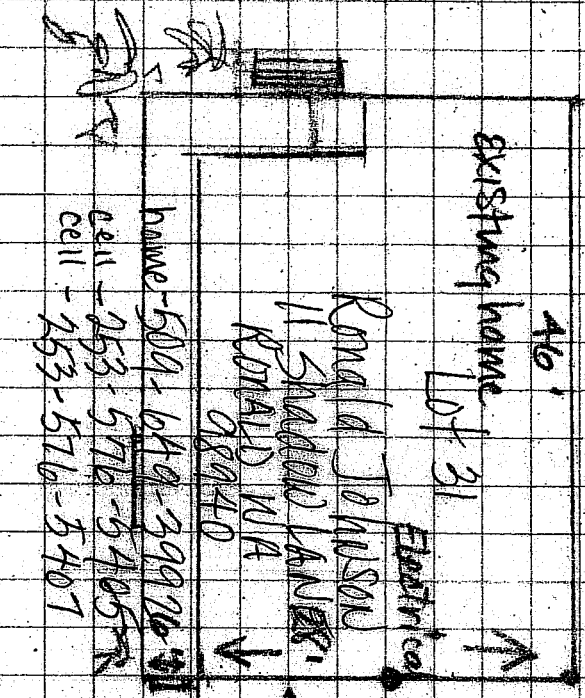 46'
Existing home
Lot 31
Electrical
Ronald Johnson
11 Shadow LANE
RONALD WA
98940
home-509-649-3992
cell-253-576-5405
cell-253-576-5407